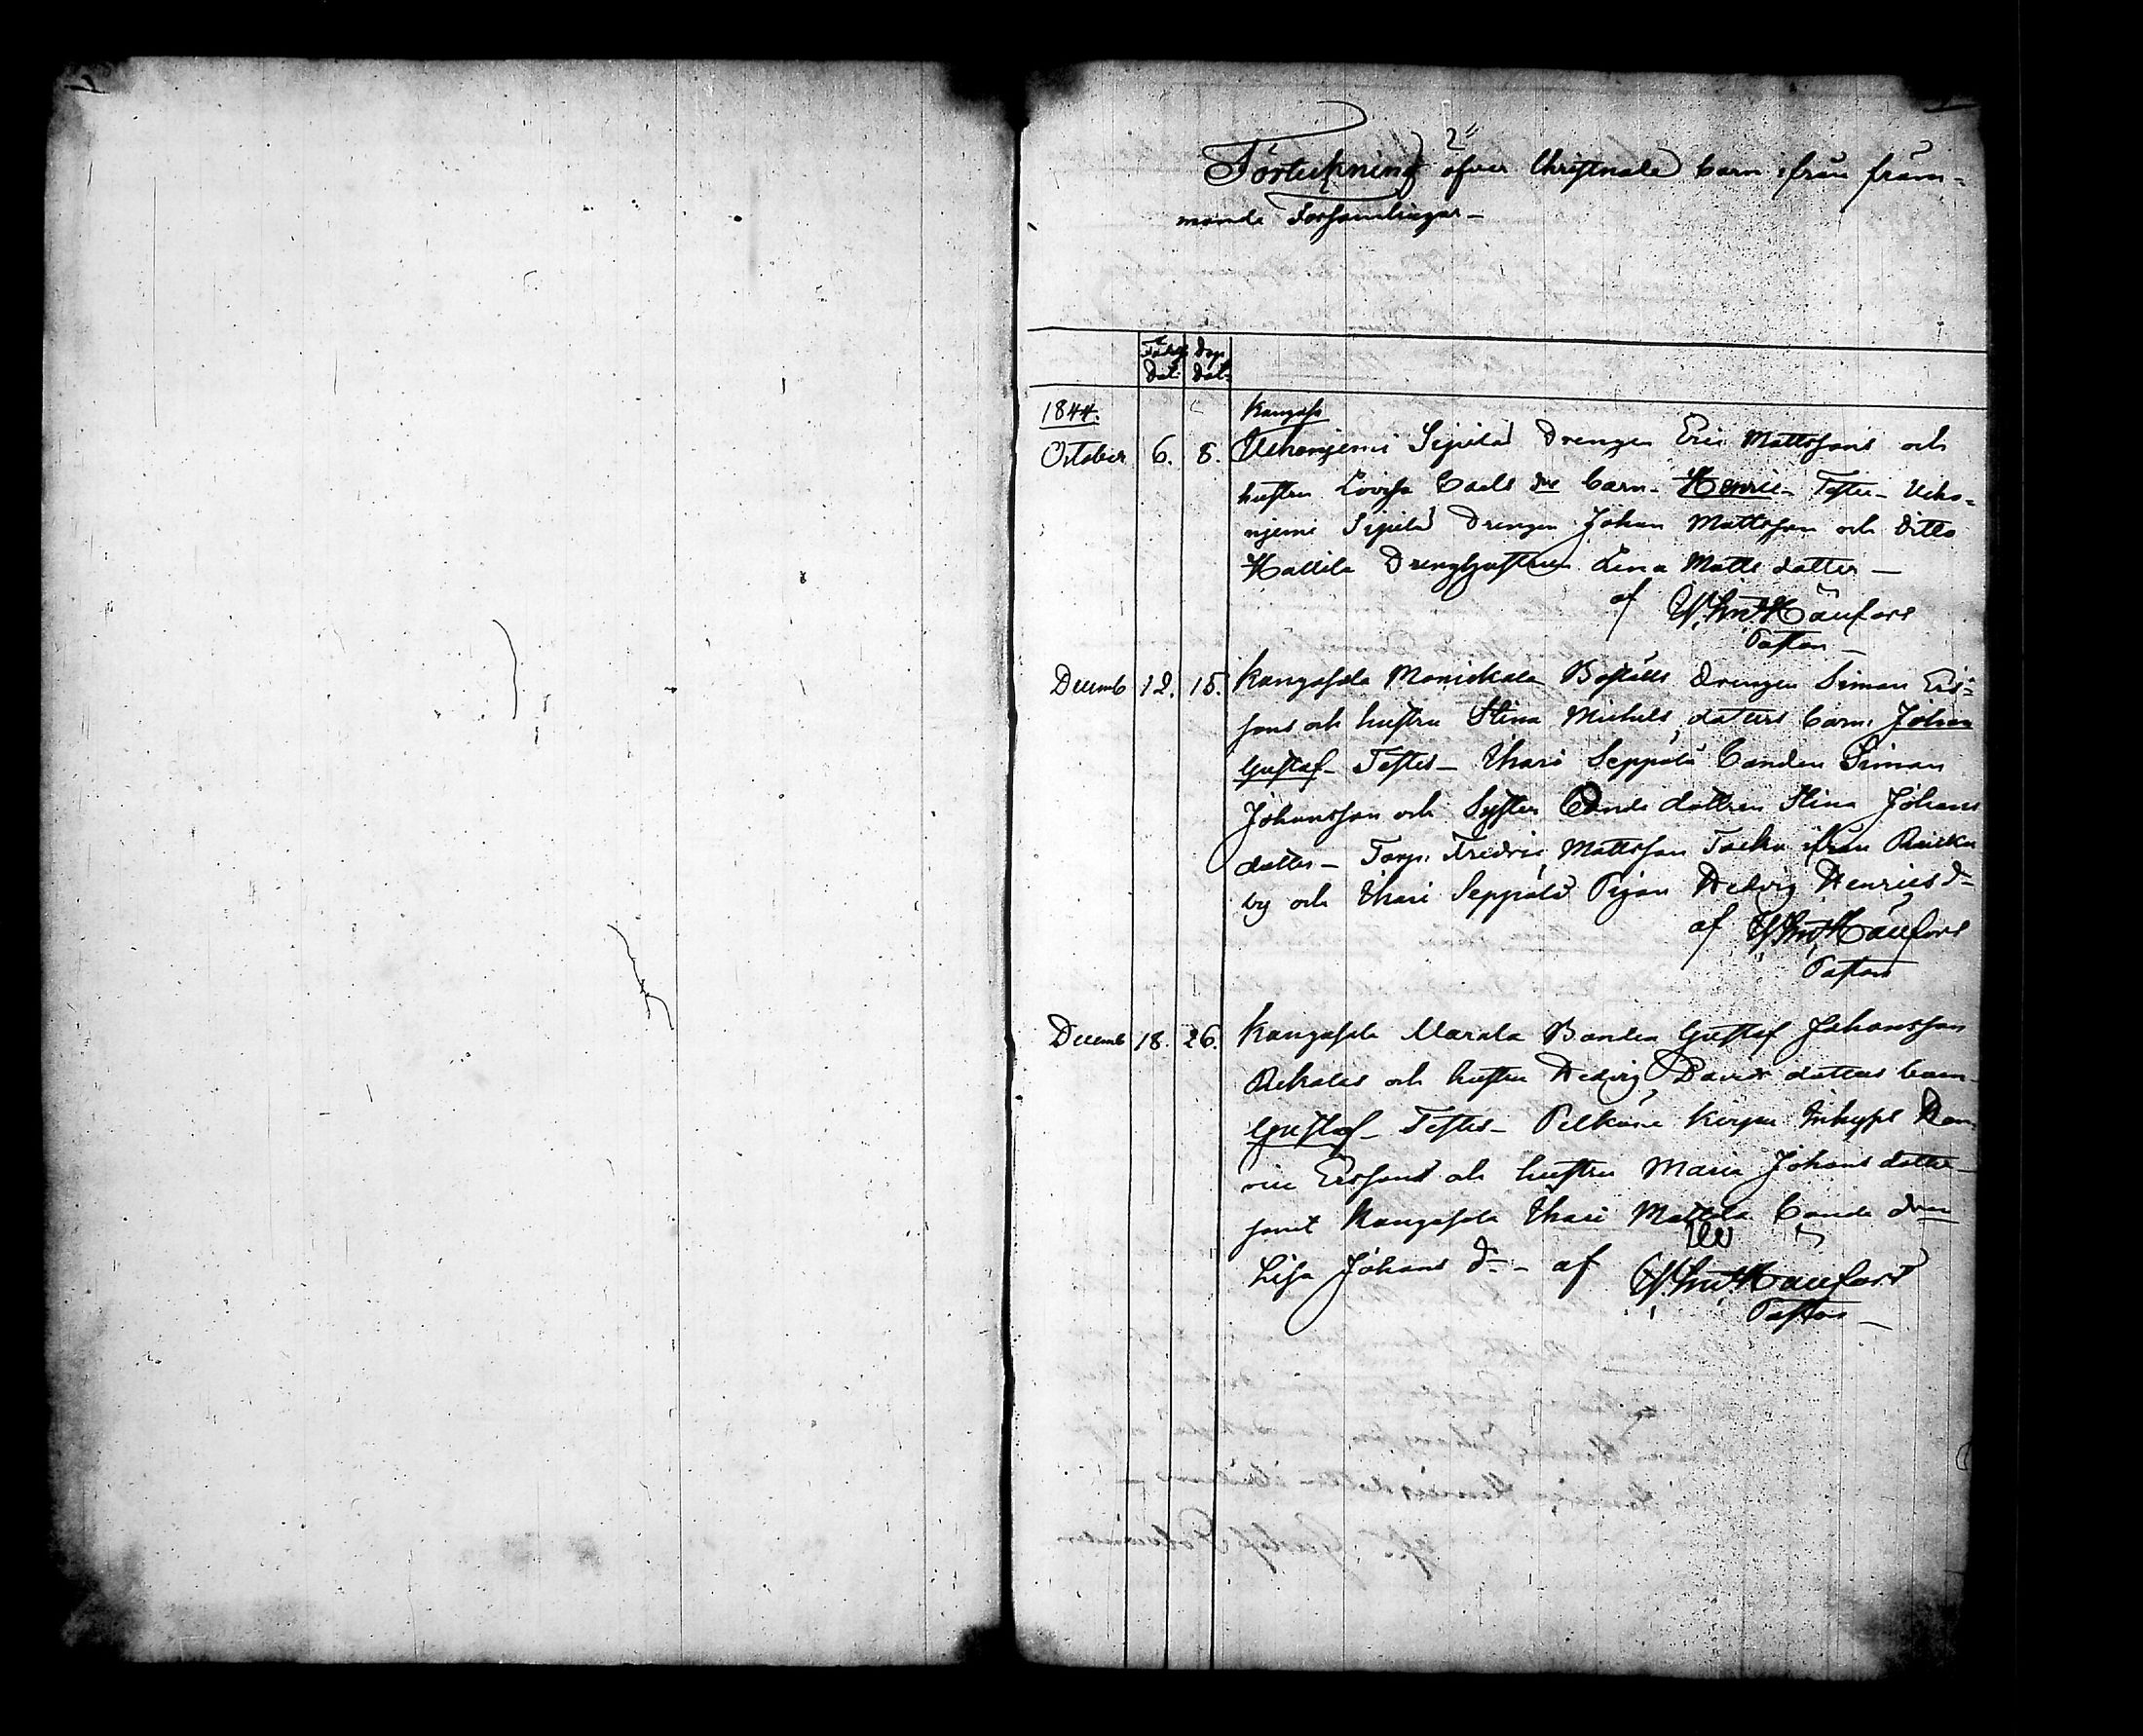 Förteckning öfver Christnade barn ifrån främ-
mande Församlingar –
Födelse Dop
dat. dat.
1844. Kangasa
October 6. 8. Sepilä Drengen Eric Mattssons och
hustru Lovisa Carls drs barn. Henric. Testes
Sepilä Drengen Johan Mattsson och ditto
Hallila Drenghustrun Lena Matts dotter –
af
Pastor –
Decemb 12. 15. Kangasala Boställs Drengen Simon Ers-
sons och hustru Stina Michels dotters barn. Johan
Gustaf – Testes – Ihari Seppälä Bonden Simon
Johansson och Syster Bonde dottren Stina Johans
dotter – Torp. Fredric Mattsson ifrån
by och Ihari Seppälä Pigan Hedvig Henrics d–
af
Pastor
Decemb 18. 26. Kangasala Bonden Gustaf Johansson
och hustru Hedvig Davids dotters barn
Gustaf – Testes – Pelkäne Inhyses Hen-
ric Erssons och hustru Maria Johans dotter –
samt Kangasala Ihari Mattila Bonde drn
Lisa Johans dr – af
Pastor –